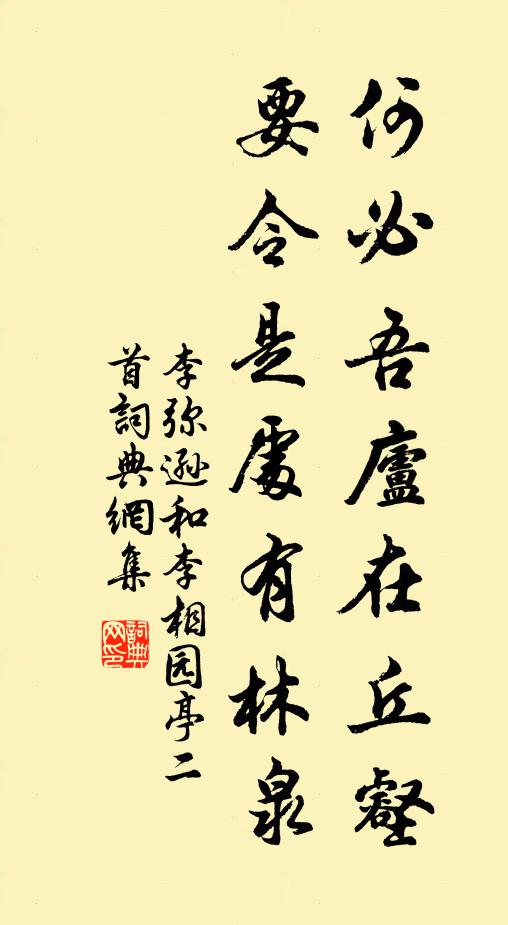 何必吾廬在丘壑
要令是處有林泉
李弥逊和李相园亭二
首詞典網集
詞典
网印